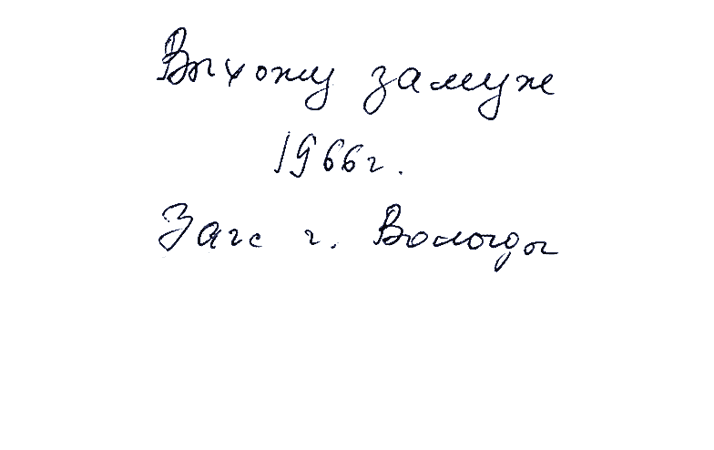 Выхожу замуж
1966г.
Загс г. Вологды